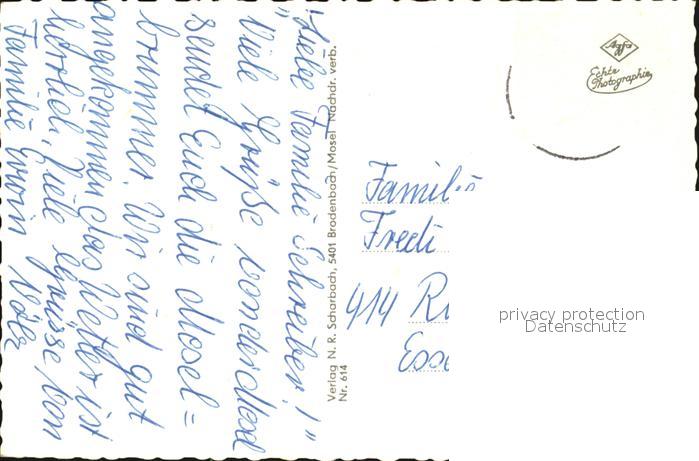 "Liebe Familie Schreiber!"
Viele Grüße von der Mosel
sendet Euch die Mosel=
brummer. Wir sind gut
angekommen das Wetter ist
herrlich, Viele Grüsse von
Familie Erwin
Verlag N. R. Scharbach, 5401 Brodenbach/Mosel Nachdr. verb.
Nr. 614
Agfa
Echte
Photographie
Familie
Fredi
414
Esse
privacy protection
Datenschutz